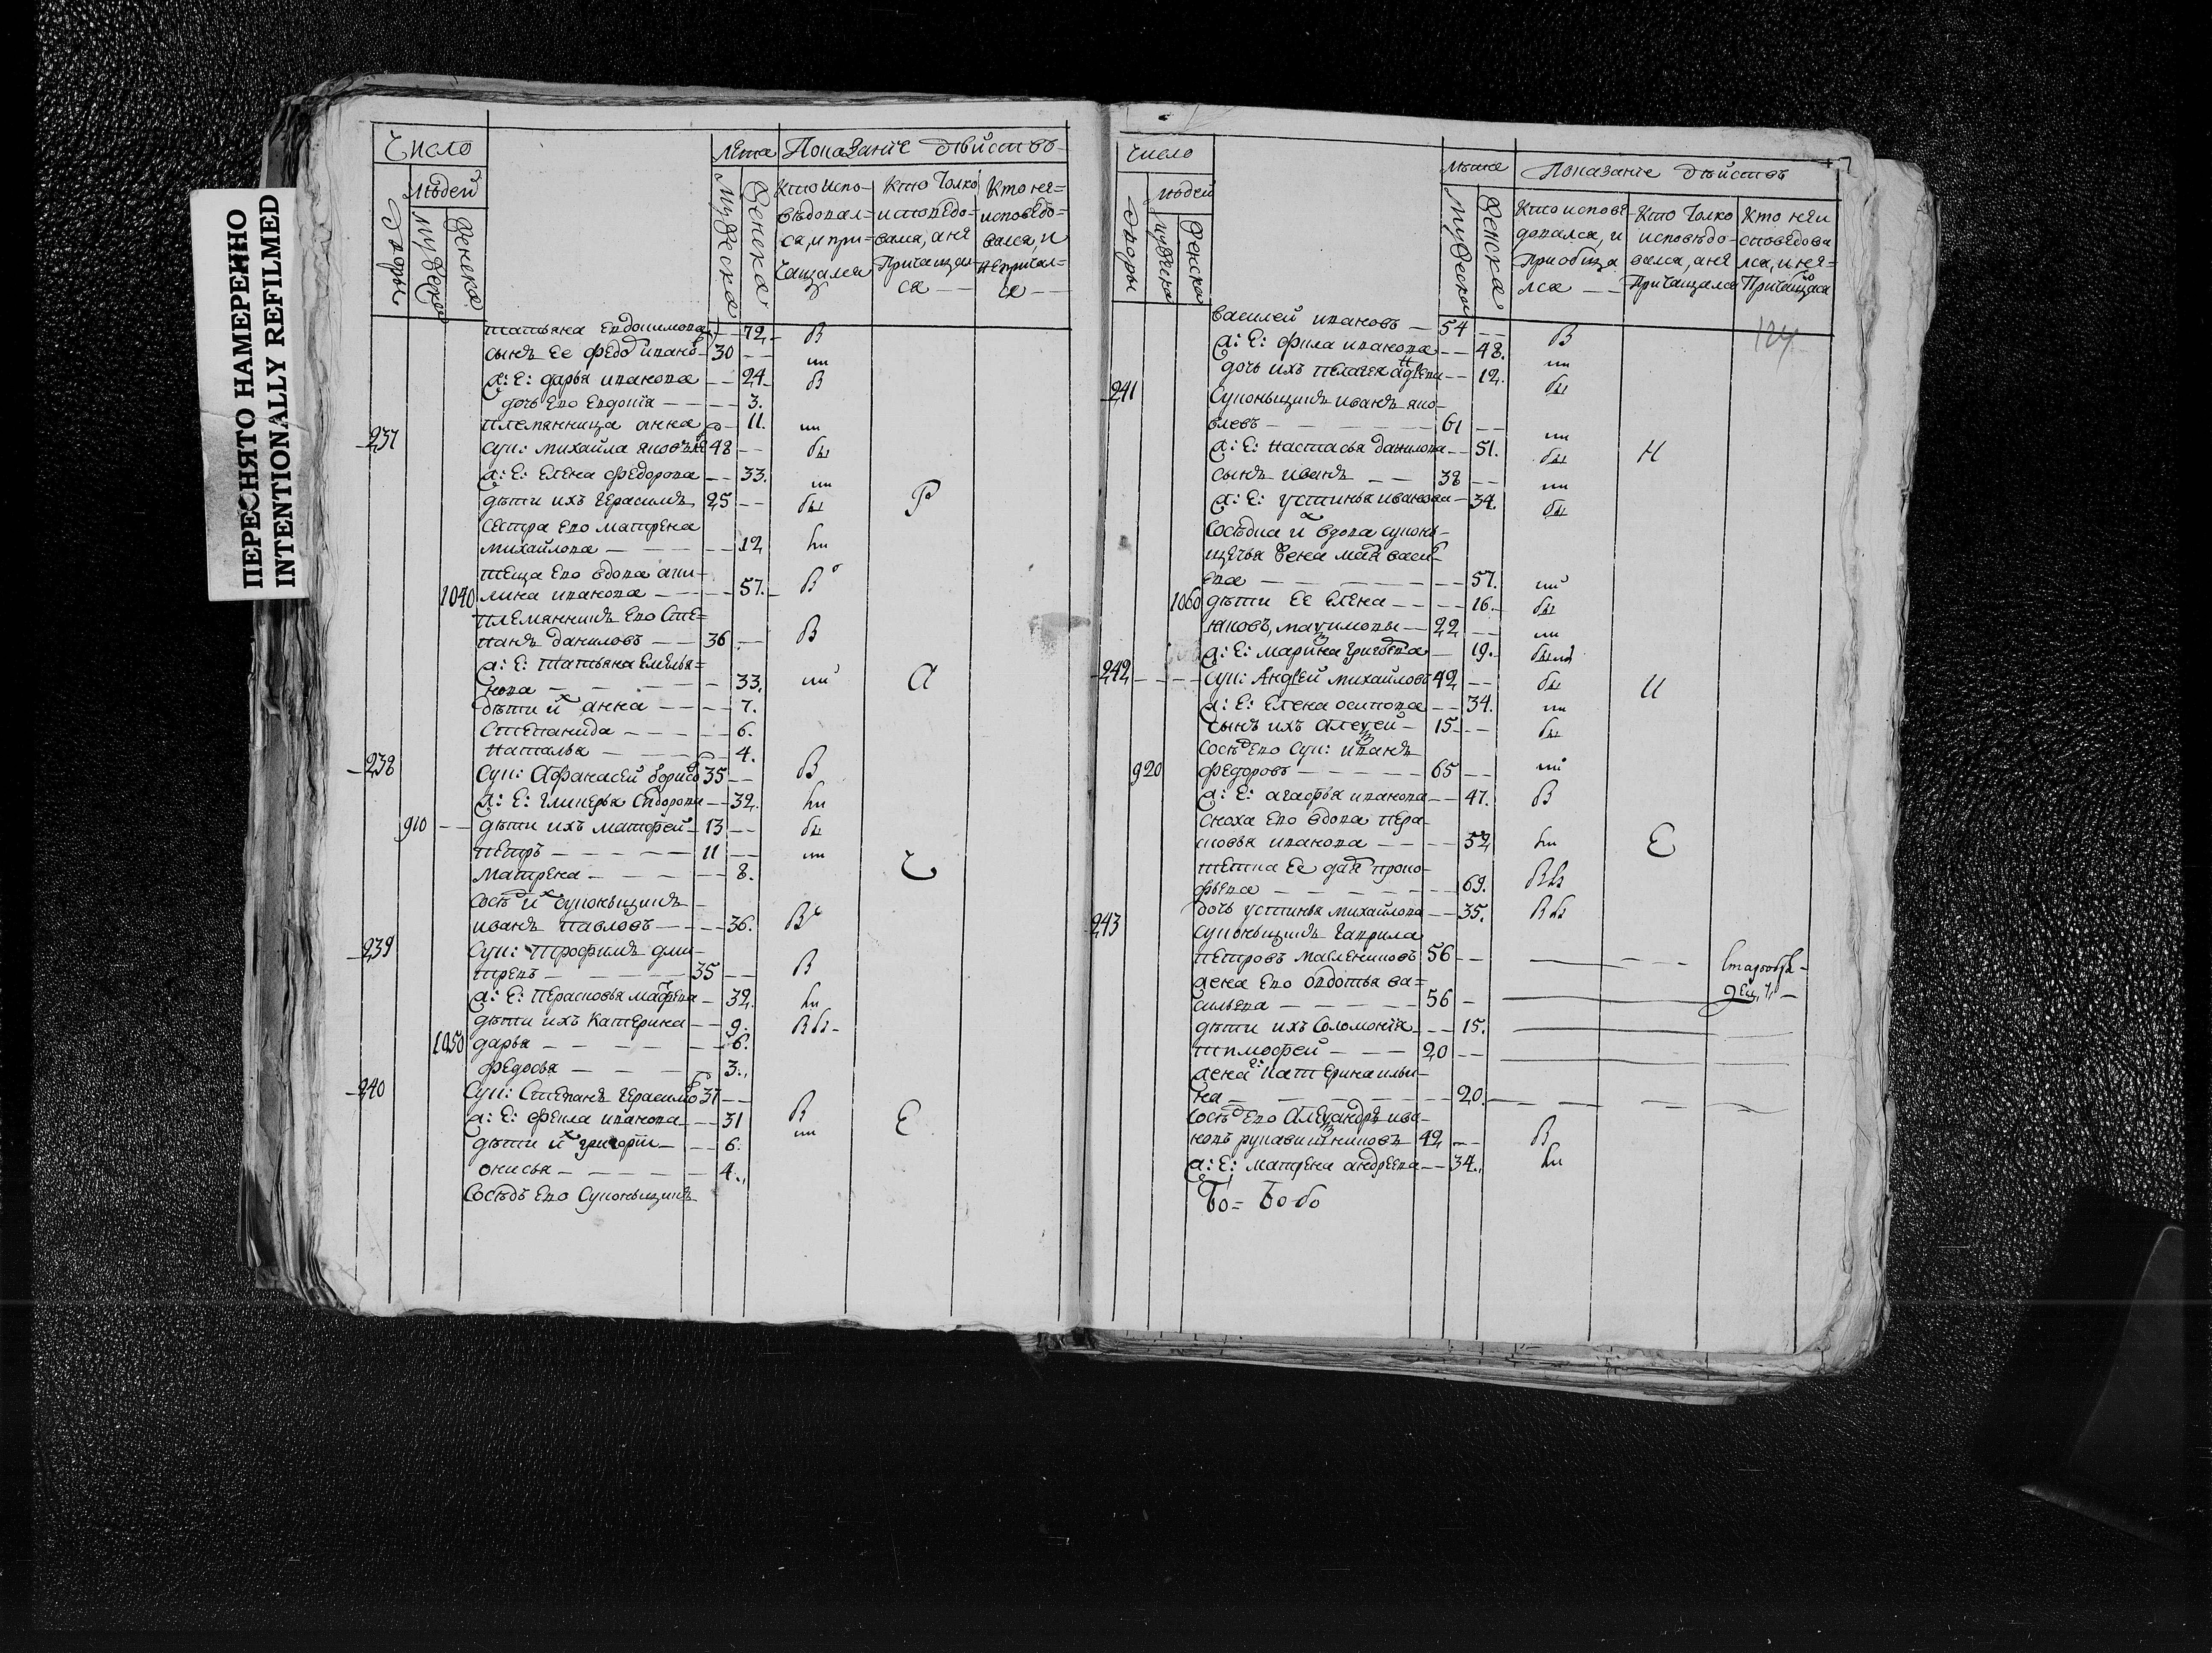 ПЕРЕСНЯТО НАМЕРЕННО
INTENTIONALLY REFILMED
Число
Лѣта Показаніе дѣйствъ
людей
Дворы
Мужеска
Женска
Мужеска
Женска
Кто испо-
вѣдовал-
ся, и при-
чащался
Кто только
исповѣдо-
вался, а не
Причащал
ся
Кто не-
исповѣдо-
вался, и
не причал-
ся
татьяна Евдокимова 72 В
сынъ Ее Федо ивано 30
ж: Е: дарья иванова 24 В
дочь Ево Евдокія 3.
племянница анна 11.
237 Суп: михайла яков 48 бы
ж: Е: Елена Федорова 33.
дѣти ихъ Герасимъ 25 бы Р
сестра Ево матрена
михайлова 12
теща Ево вдова аки-
1040 лина иванова 57. В
племянникъ Ево Сте-
панъ даниловъ 36 В
ж: Е: татьяна Емелья-
нова 33. а
дѣти их анна 7.
Степанида 6.
наталья 4.
238 Суп: Афанасей борисо 35 В
ж: Е: гликерья Сидорова 32.
910 дѣти ихъ матфей 13 бы
петръ 11
матрена 8. С
Сосѣд их супоньщикъ
иванъ павловъ 36. В
239 Суп: трофимъ дми-
тревъ 35 В
ж: Е: Перасковья мафеева 32.
дѣти ихъ Катерина 9.
1050 дарья 6.
федосья 3.
240 Суп: Степанъ герасимо 37
ж: Е: фекла иванова 31 В Е
дѣти их григорій 6.
онисья 4.
Сосѣдъ Ево Супоньщикъ
Число
лѣта Показаніе дѣйствъ
людей
Дворы
мужеска
Женска
Мужеска
Женска
Кто исповѣ
довался, и
Приобща
лся
Кто только
исповѣдо-
вался, а не
Причащался
Кто не и
сповѣдова
лся, и не-
Причащался
124
василей ивановъ 54 В
ж: Е: фекла иванова 48.
дочь ихъ пелагея 12. бы
241 Супоньщикъ иванъ яко-
влевъ 61
ж: Е: настасья данилова 51. бы Н
сынъ иванъ 38
ж: Е: устинья иванова 34. бы
Сосѣдка их вдова супонь-
щичья жена васи
ева 57.
1060 дѣти Ее Елена 16. бы
яковъ, максимовы 22
ж: Е: марина григорева 19.
242 Суп: Андрей михайловъ 42 бы И
ж: Е: Елена осипова 34.
сынъ ихъ алексей 15 бы
Сосѣд Ево Суп: иванъ
920 федоровъ 65
ж: Е: агафья иванова 47. В
Сноха Ево вдова пера-
сковья иванова 52 Е
тетка Ее дарья проко-
фьева 69.
дочь устинья михайлова 35.
243 супоньщикъ гаврила
петровъ масленниковъ 56
жена Ево овдотья ва-
сильева 56
Старообря-
дцы
дѣти ихъ Соломонія 15.
тимофей 20
жена Е: катерина ильи-
на 20.
Сосѣд Ево Александръ ива-
новъ рукавишниковъ 42 В
ж: Е: матрена андреева 34.
Бо= Бо бо